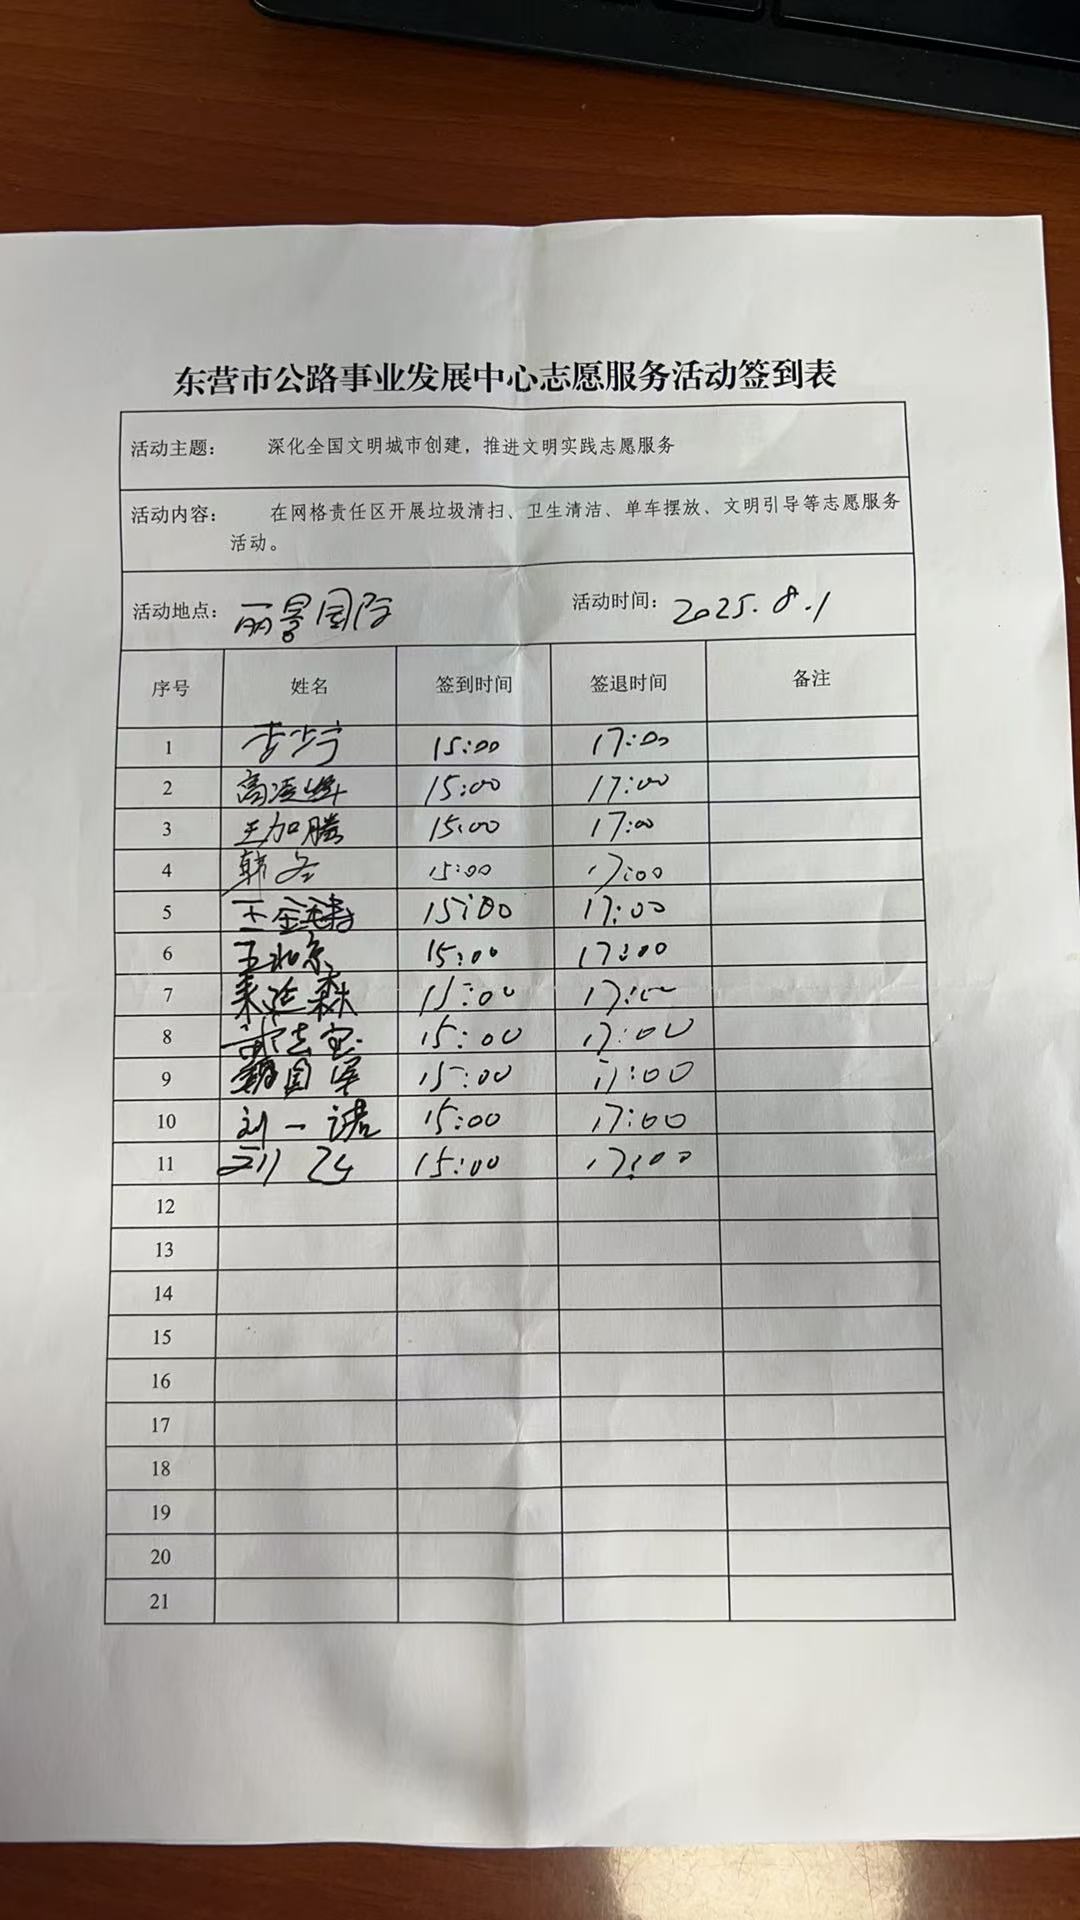 东营市公路事业发展中心志愿服务活动签到表
活动主题: 深化全国文明城市创建，推进文明实践志愿服务
活动内容: 在网格责任区开展垃圾清扫、卫生清洁、单车摆放、文明引导等志愿服务
活动。
活动地点: 丽景国际 活动时间: 2025.8.1
序号 姓名 签到时间 签退时间 备注
1 15:00 17:00
2 高凌峰 15:00 17:00
3 王加腾 15:00 17:00
4 韩冬 15:00 17:00
5 15:00 17:00
6 王北京 15:00 17:00
7 15:00 17:00
8 15:00 17:00
9 魏国军 15:00 17:00
10 刘一诺 15:00 17:00
11 15:00 17:00
12
13
14
15
16
17
18
19
20
21